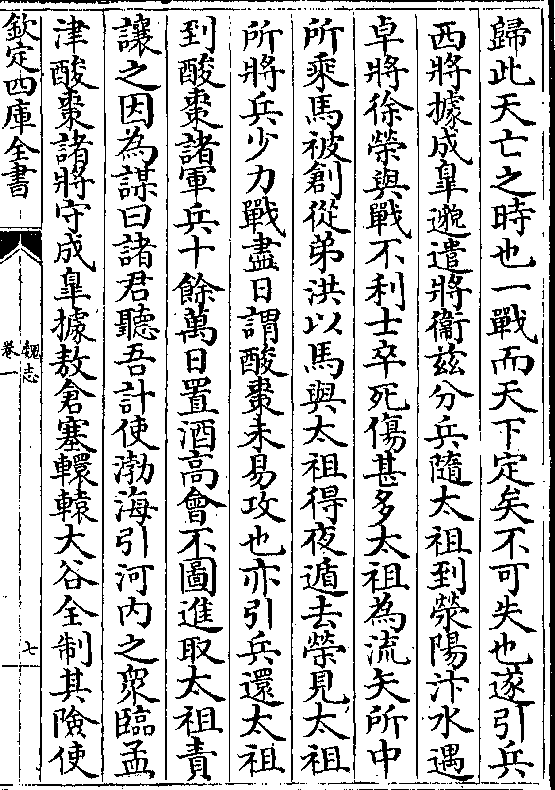 歸此天亡之時也一戰而天下定矣不可失也遂引兵
西將據成臯邈遣將衞茲分兵隨太祖到滎陽汴水遇
卓將徐榮與戰不利士卒死傷甚多太祖為流矢所中
所乘馬被創從弟洪以馬與太祖得夜遁去榮見太祖
所將兵少力戰盡日謂酸棗未易攻也亦引兵還太祖
到酸棗諸軍兵十餘萬日置酒高會不圖進取太祖責
讓之因為謀曰諸君聽吾計使渤海引河内之衆臨孟
津酸棗諸將守成臯據敖倉塞轘轅大谷全制其險使
欽定四庫全書
魏志
卷一
七